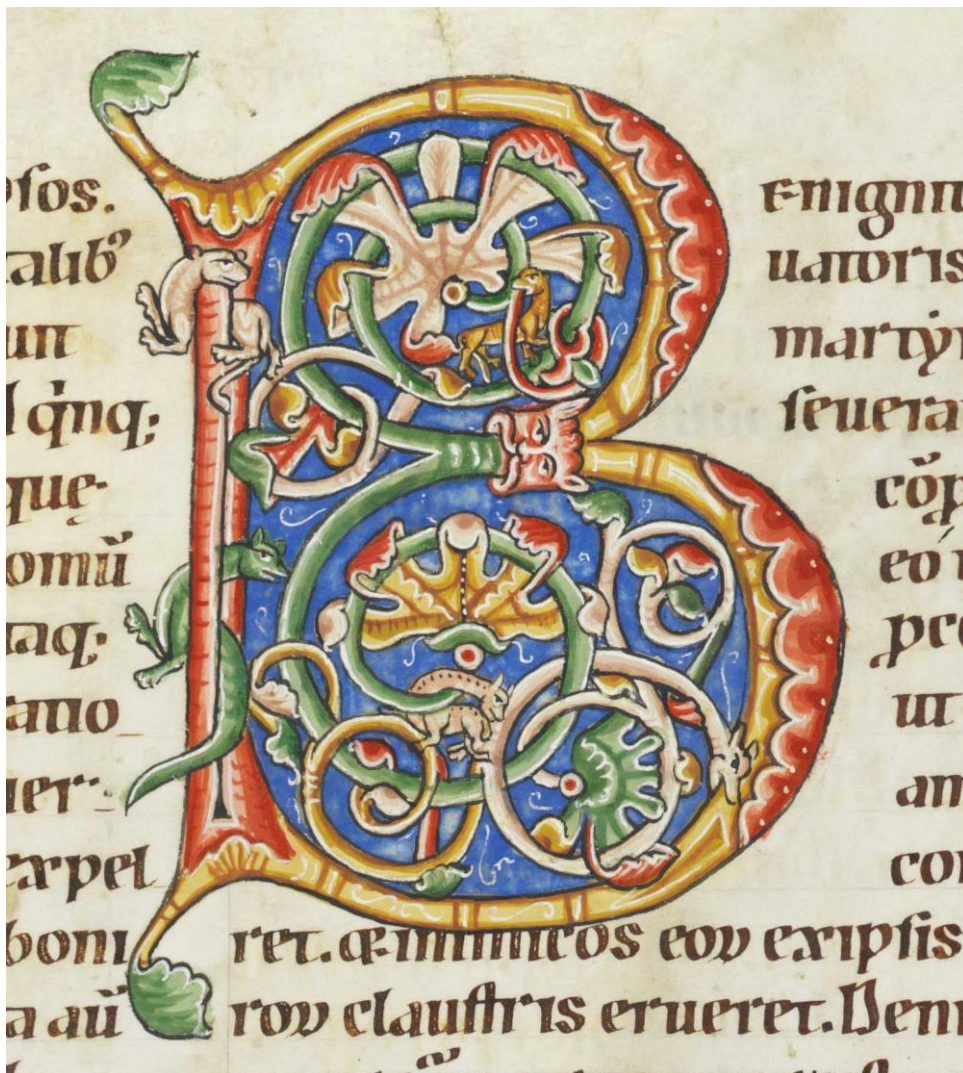 pſos.
talib᾽
unt
l qͥnq;
quę·
omū
taq;
atio
uer·
expel
boni
a aū
BENIGNIT
uatoris
martyr
ſeuera
cōp
pro
ut
am
con
ret. & inimicos eoꝝ ex ipſis
roꝝ clauſtris erueret. Deni